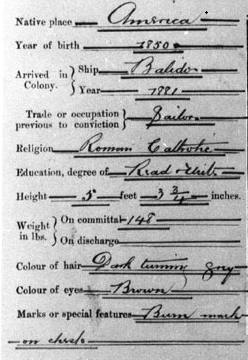 Native place America
Year of birth 1850
Arrived in Colony. } Ship
Year 1881
Trade or occupation previous to conviction } Sailor
Religion Roman Catholic
Education, degree of Read & Write
Height 5 feet 3 3/4 inches.
Weight in lbs. } On committal 148
On discharge
Colour of hair Dark turning grey
Colour of eyes Brown
Marks or special features Burn mark
on cheek